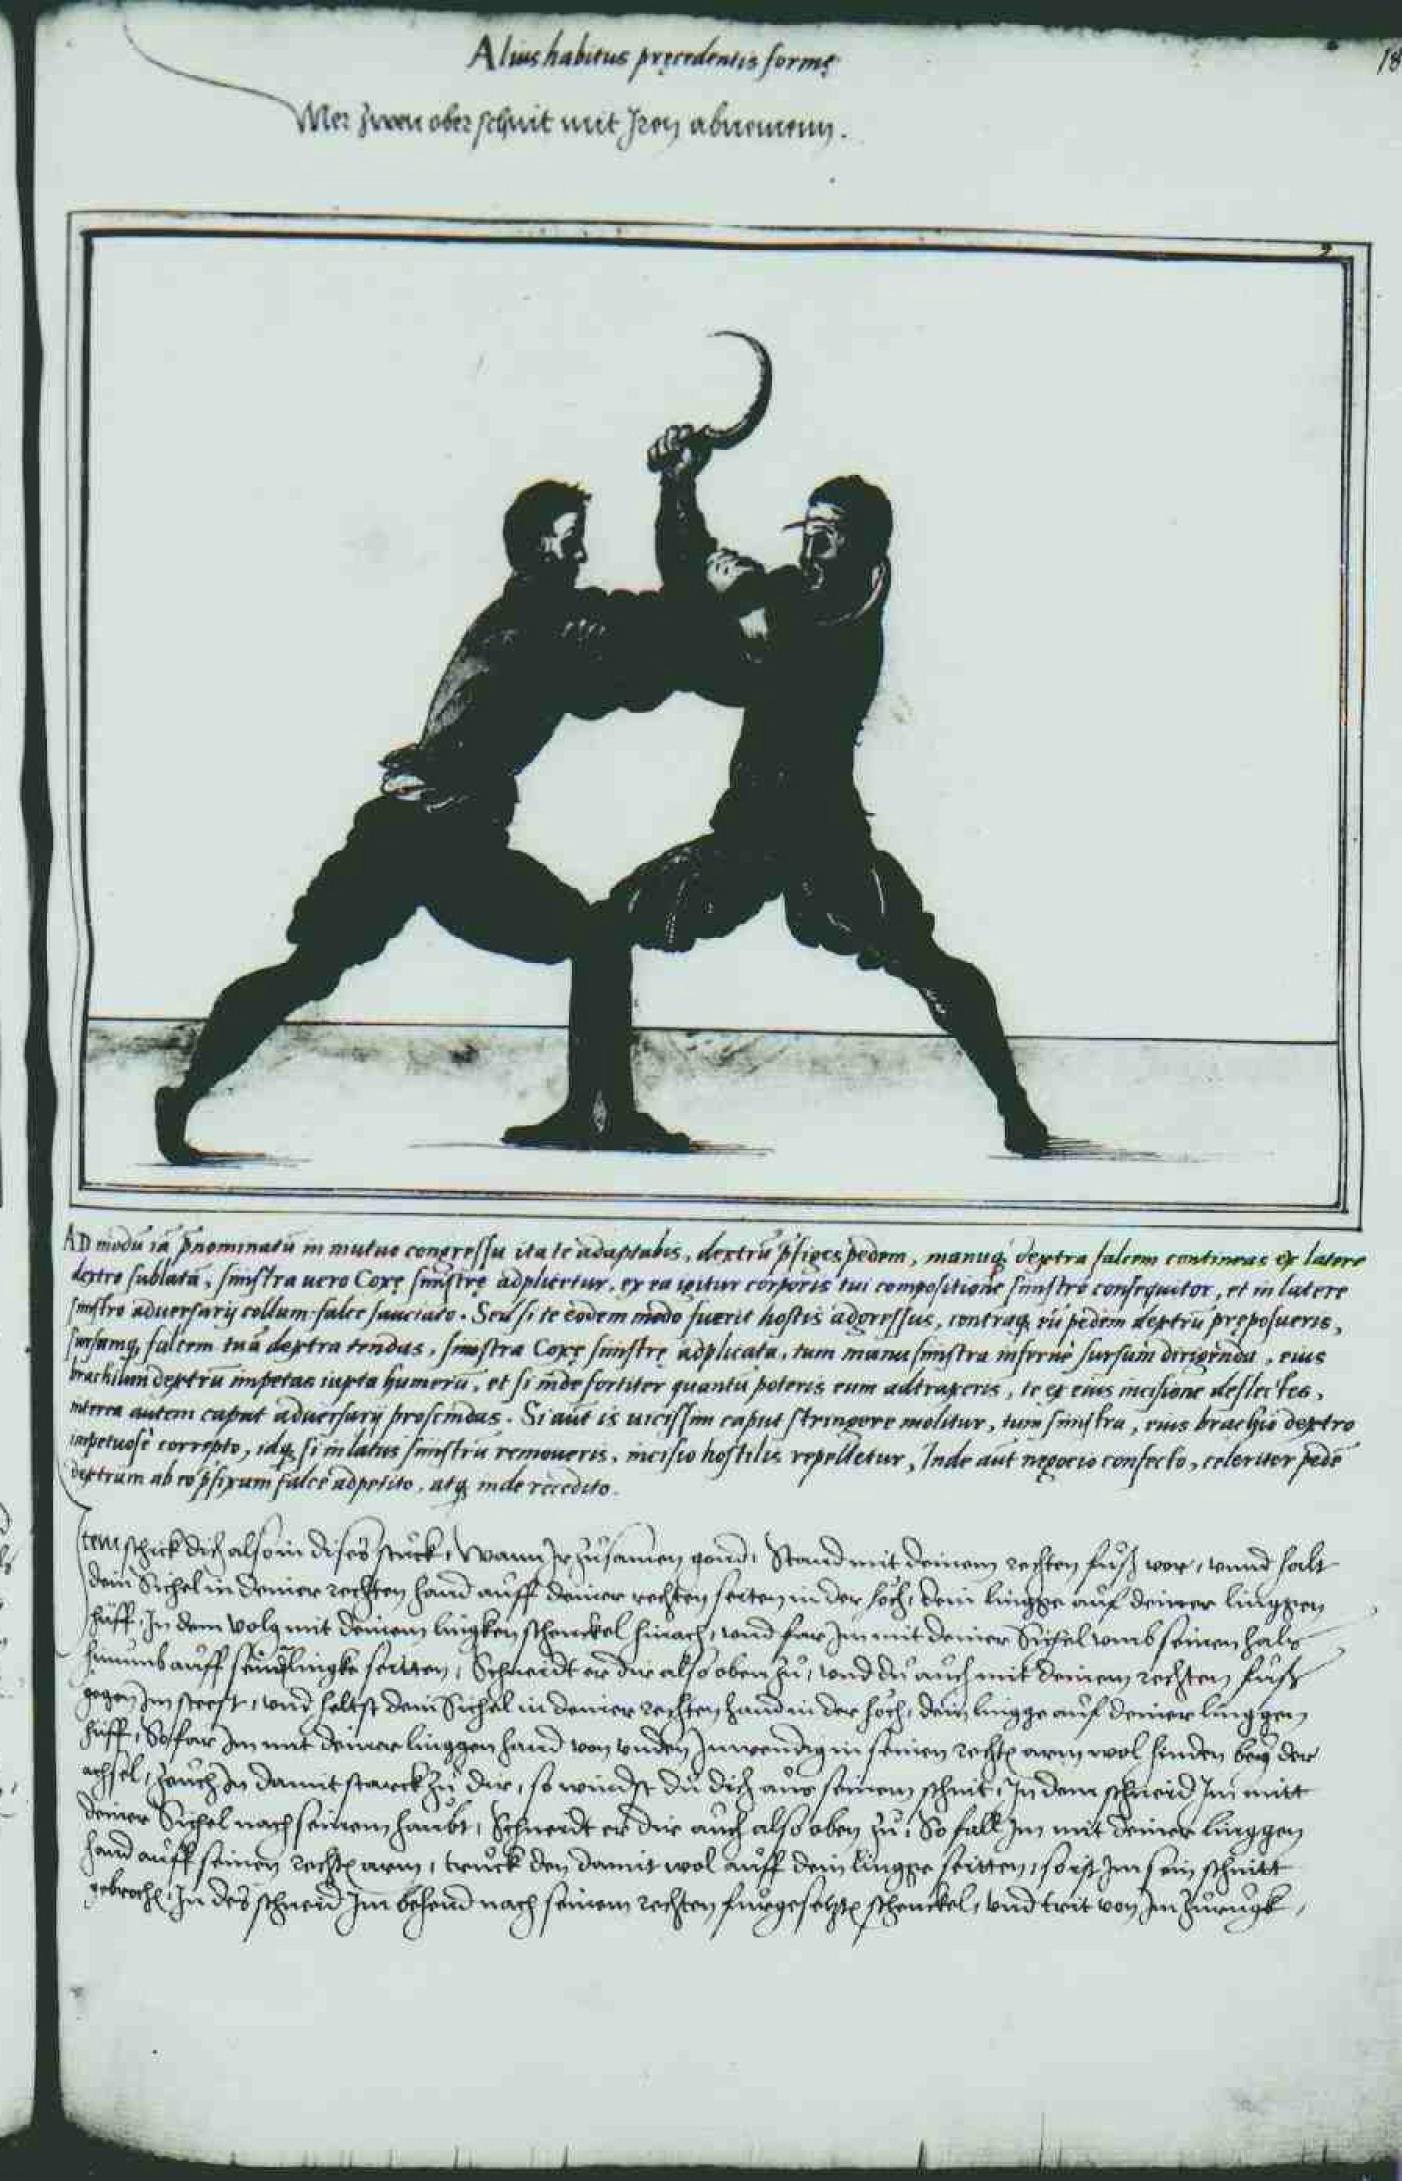 Alius habitus pręcedentis formę
18
Mer zwen ober schnit mit Iren abnemenn.
9
AD modū iā p̄nominatū in mutuo congressu ita te adaptabis, dextrū p̄figes pedem, manuq; dextra falcem contineas ex latere
dextro sublatā, sinistra uero Coxę sinistrę adplicetur, ex ea igitur corporis tui compositione sinistro consequitor, et in latere
sinistro aduersarij collum falce sauciato. Seu si te eodem modo fuerit hostis adgressus, contraq; eū pedem dextrū pręposueris,
sursumq; falcem tuā dextra tendas, sinistra Coxę sinistrę adplicata, tum manu sinistra infernè sursum dirigenda, eius
brachium dextrū impetas iuxta humerū, et si inde fortiter quantū poteris eum adtraxeris, te ex eius incisione deflectes,
interea autem caput aduersarij proscindas. Si aūt is uicissim caput stringere molitur, tum sinistra, eius brachio dextro
impetuosè correpto, idq; si in latus sinistrū remoueris, incisio hostilis repelletur, Inde aūt negocio confecto, celeriter pedē
dextrum ab eo p̄fixum falcē adpetito, atq; inde recedito.
Item schick dich also in dises stuck, Wann Ir zusamen gond, Stand mit deinem rechten fuß vor, vnnd halt
dein Sichel in deiner rechten hand auff deiner rechten seiten in der höch, dein lingge auf deiner linggen
huff, In dem volg mit deinem lingken schenckel hinach, vnd far Im mit deiner Sichel vmb seinen hals
hinumb auff sein lingke seitten, Schneidt er dir also oben zu, vnd du auch mit deinem rechten fuß
gegen Im steest, vnd heltst dein Sichel in deiner rechten hand in der höch, dein lingge auf deiner linggen
huff, So far Im mit deiner linggen hand von vnden Inwendig in seinen rechtē arm wol hinden bey der
achsel, zeuch In damit starck zu dir, so windst du dich aus seinem schnit, In dem schneid Im mitt
deiner Sichel nach seinem haubt, Schneidt er dir auch also oben zu, So fall Im mit deiner linggen
hand auff seinen rechtē arm, truck den damit wol auff dein lingge seitten, so ist Im sein schnitt
gebrochē, In des schneid Im behend nach seinem rechten furgesetztē schenckel, vnd trit von Im zurugk,